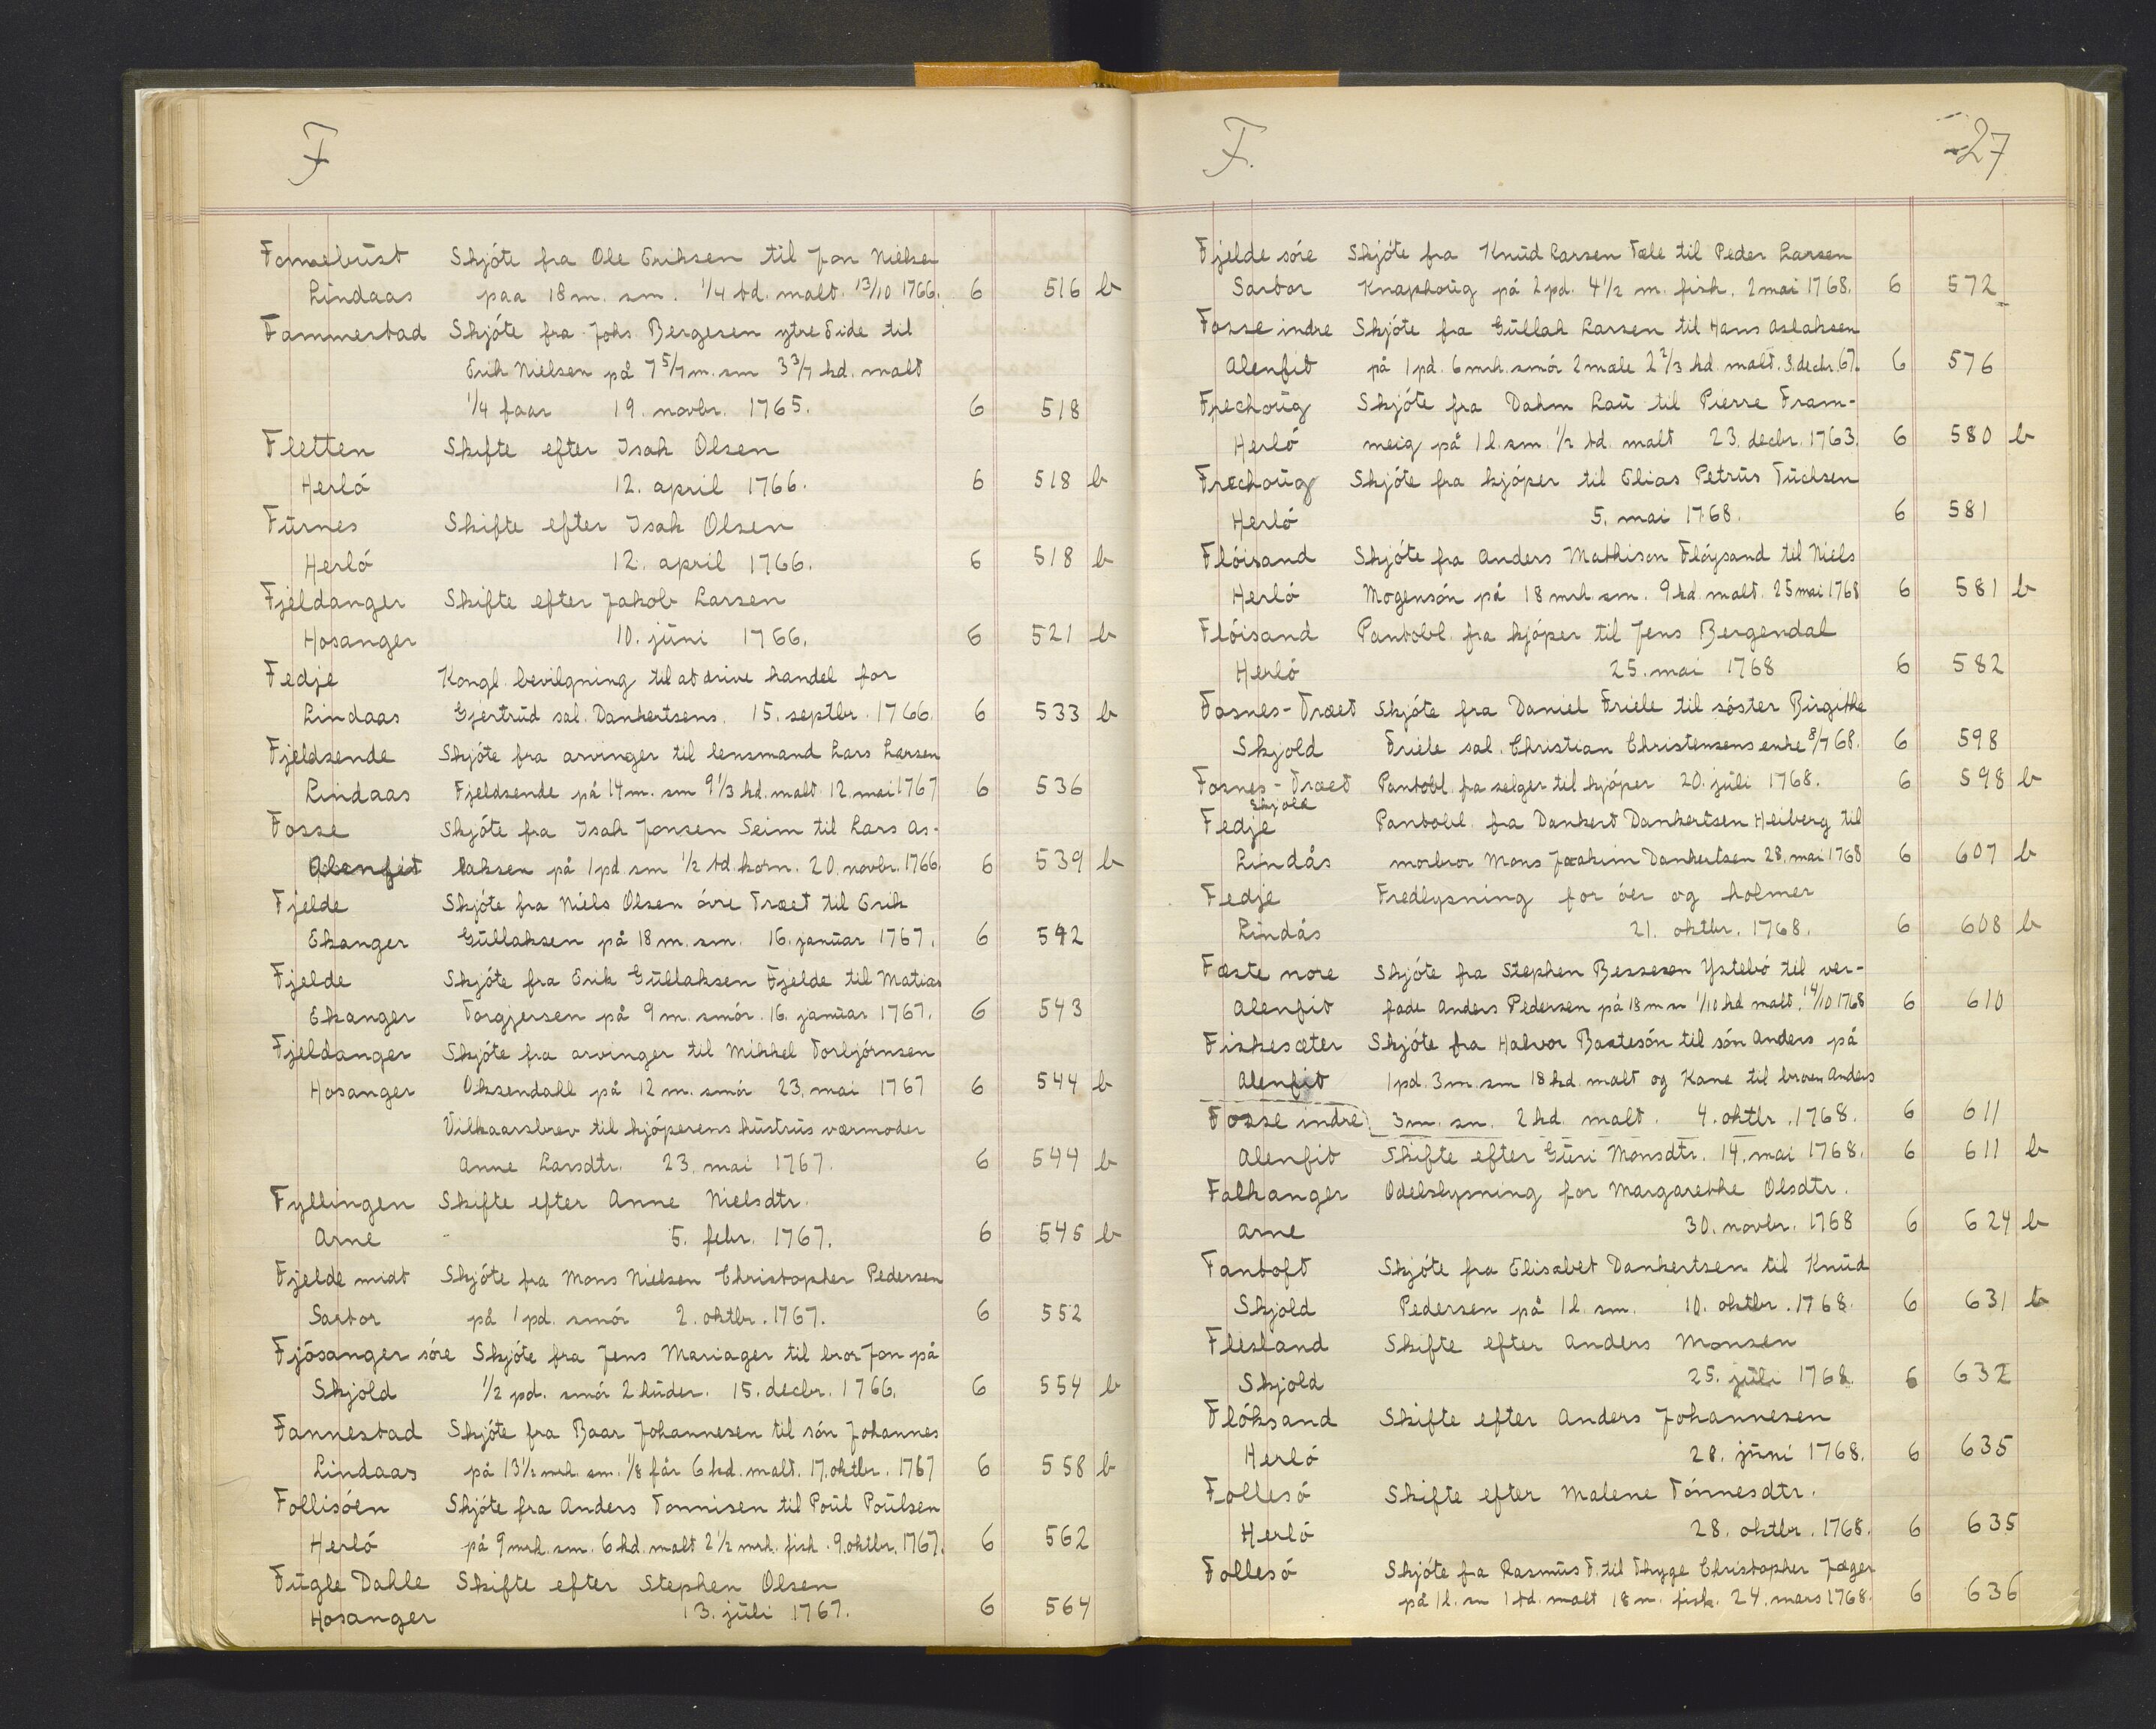 F
Fonnebust Skjóte fra Ole Eriksen til Jon Nielsen
Lindaas paa 18 m. sm. 1/4 td. malt. 13/10 1766. 6 516 b
Fammestad Skjóte fra Johs Bergesen ytre Eide til
Erik Nielsen på 7 5/7 m. sm 3 3/7 kd. malt
1/4 faar 19. novbr. 1765. 6 518
Fletten Skifte efter Isak Olsen
Herló 12. april 1766. 6 518 b
Furnes Skifte efter Isak Olsen
Herló 12. april 1766. 6 518 b
Fjeldanger Skifte efter Jakob Larsen
Hosanger 10. juni 1766. 6 521 b
Fedje Kongl. bevilgning til at drive handel for
Lindaas Gjertrud sal. Dankertsens. 15. septbr. 1766. 6 533 b
Fjeldsende Skjóte fra arvinger til lensmand Lars Larsen
Lindaas Fjeldsende på 14 m. sm 9 1/3 kd. malt 12. mai 1767 6 536
Fosse Skjóte fra Isak Jonsen Seim til Lars As-
Alenfit laksen på 1 pd sm 1/2 td. korn. 20. novbr. 1766. 6 539 b
Fjelde Skjóte fra Niels Olsen óvre Træet til Erik
Ekanger Gullaksen på 18 m. sm. 16. januar 1767. 6 542
Fjelde Skjóte fra Erik Gullaksen Fjelde til Matias
Ekanger Torgjersen på 9 m. smór. 16. januar 1767. 6 543
Fjeldanger Skjóte fra arvinger til Mikkel Torbjórnsen
Hosanger Oksendahl på 12 m. smór 23. mai 1767 6 544 b
Vilkaarsbrev til kjóperens hustrus værmoder
Anne Larsdtr. 23. mai 1767. 6 544 b
Fyllingen Skifte efter Anne Nielsdtr.
Arne 5. febr. 1767. 6 545 b
Fjelde midt Skjóte fra Mons Nielsen Christopher Pedersen
Sartor på 1 pd. smór 2. oktbr. 1767. 6 552
Fjósanger sóre Skjóte fra Jens Mariager til bror Jon på
Skjold 1/2 pd. smór 2 huder. 15. decbr. 1766. 6 554 b
Fannestad Skjóte fra Baar Johannesen til són Johannes
Lindaas på 13 1/2 mrk. sm. 1/8 får 6 kd. malt. 17. oktbr. 1767 6 558 b
Follisóen Skjóte fra Anders Tonnisen til Poul Poulsen
Herló på 9 mrk. sm. 6 kd. malt 2 1/2 mrk. fisk. 9. oktbr. 1767. 6 562
Fugle Dahle Skifte efter Stephen Olsen
Hosanger 13. juli 1767. 6 564
F. 27
Fjelde sóre Skjóte fra Knud Larsen Tæle til Peder Larsen
Sartor Knaphoug på 2 pd. 4 1/2 m. fisk. 2 mai 1768. 6 572
Fosse indre Skjóte fra Gullak Larsen til Hans Aslaksen
Alenfit på 1 pd. 6 mrk. smór 2 mæle 2 2/3 kd. malt. 3. decbr. 67. 6 576
Frechoug Skjóte fra Dahm Lau til Pierre Fram-
Herló meig på 1 l. sm. 1/2 td. malt 23. decbr. 1763. 6 580 b
Frechoug Skjóte fra kjóper til Elias Petrus Tuchsen
Herló 5. mai 1768. 6 581
Flóisand Skjóte fra Anders Mathison Flóysand til Niels
Herló Mogensón på 18 mrk. sm. 9 kd. malt. 25 mai 1768 6 581 b
Flóisand Pantobl. fra kjóper til Jens Bergendal
Herló 25. mai 1768 6 582
Fosnes-Træet Skjóte fra Daniel Friele til sóster Birgithe
Skjold Friele sal. Christian Christensens enke 8/7 68. 6 598
Fosnes-Træet Pantobl. fra selger til kjóper 20. juli 1768. 6 598 b
Skjold
Fedje Pantobl. fra Dankert Dankertsen Heiberg til
Lindås morbror Mons Joakim Dankertsen 28. mai 1768 6 607 b
Fedje Fredlysning for óer og holmer
Lindås 21. oktbr. 1768. 6 608 b
Fæste nore Skjóte fra Stephen Bessesen Ystebó til ver-
Alenfit fade Anders Pedersen på 18 m sm 1/10 kd malt. 14/10 1768 6 610
Fiskesæter Skjóte fra Halvor Baatesón til són Anders på
Alenfit 1 pd. 3 m. sm 18 kd. malt og Kone til broen Anders
Fosse indre 3 m. sm. 2 kd. malt. 4. oktbr. 1768. 6 611
Alenfit Skifte efter Guri Monsdtr. 14. mai 1768. 6 611 b
Falkanger Odelslysning for Margarethe Olsdtr.
Arne 30. novbr. 1768 6 624 b
Fantoft Skjóte fra Elisabet Dankertsen til Knud
Skjold Pedersen på 1 l. sm. 10. oktbr. 1768. 6 631 b
Flesland Skifte efter Anders Monsen
Skjold 25. juli 1768. 6 632
Flóksand Skifte efter Anders Johannesen
Herló 28. juni 1768. 6 635
Follesó Skifte efter Malene Tónnesdtr.
Herló 28. oktbr. 1768. 6 635
Follesó Skjóte fra Rasmus F. til Thyge Christopher Jæger
på 1 l. sm 1 td. malt 18 m. fisk. 24. mars 1768. 6 636